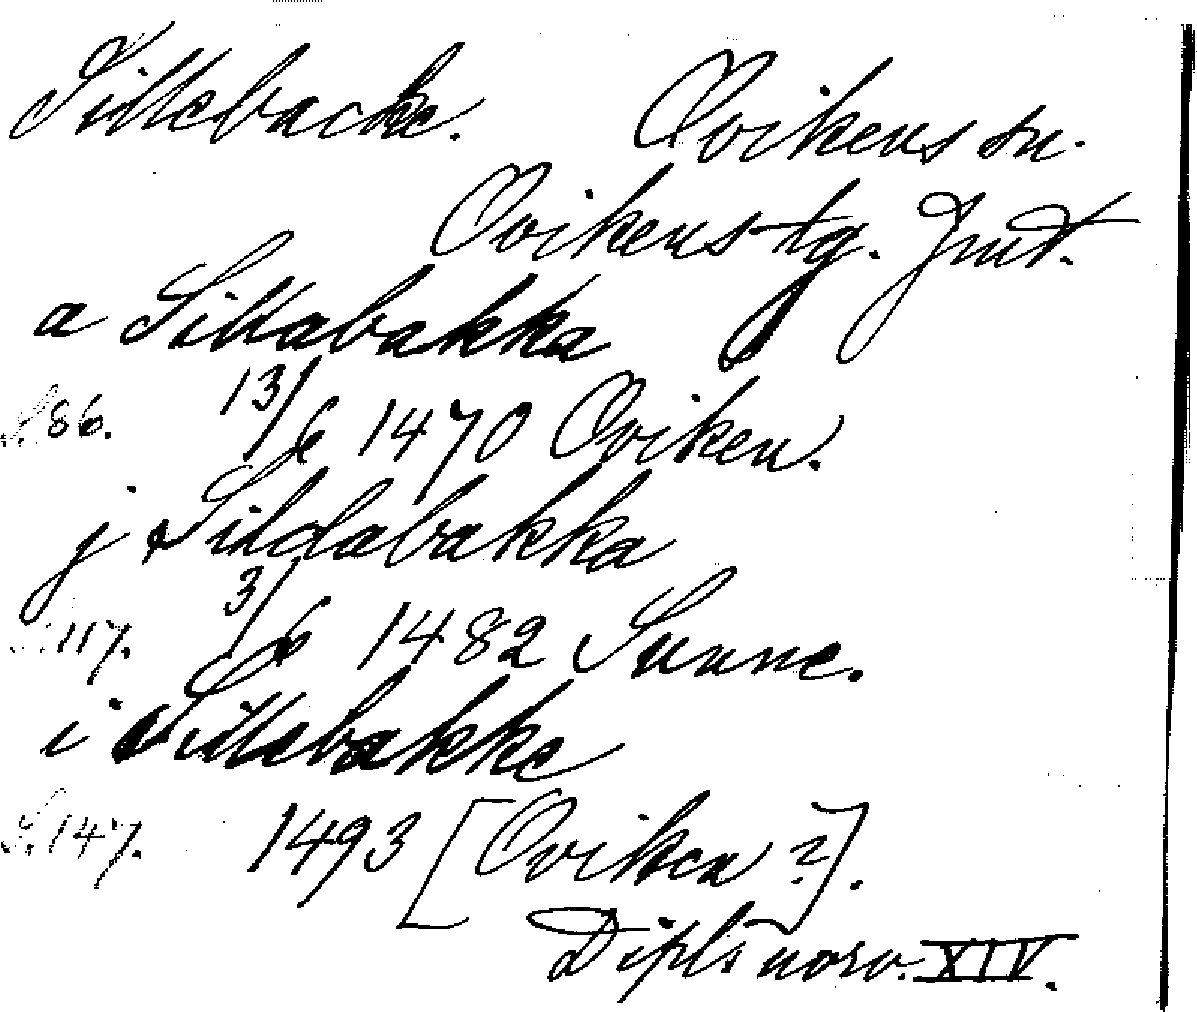 Sillebacke. Ovikens sn.
Ovikens tg. Jmt.
a Sillabakka
S. 86. 13/6 1470 Oviken.
j Sildabakka
S. 117. 3/6 1482 Sunne.
i Sillebakke
S. 147. 1493 [Oviken?].
Dipl. norv. XIV.